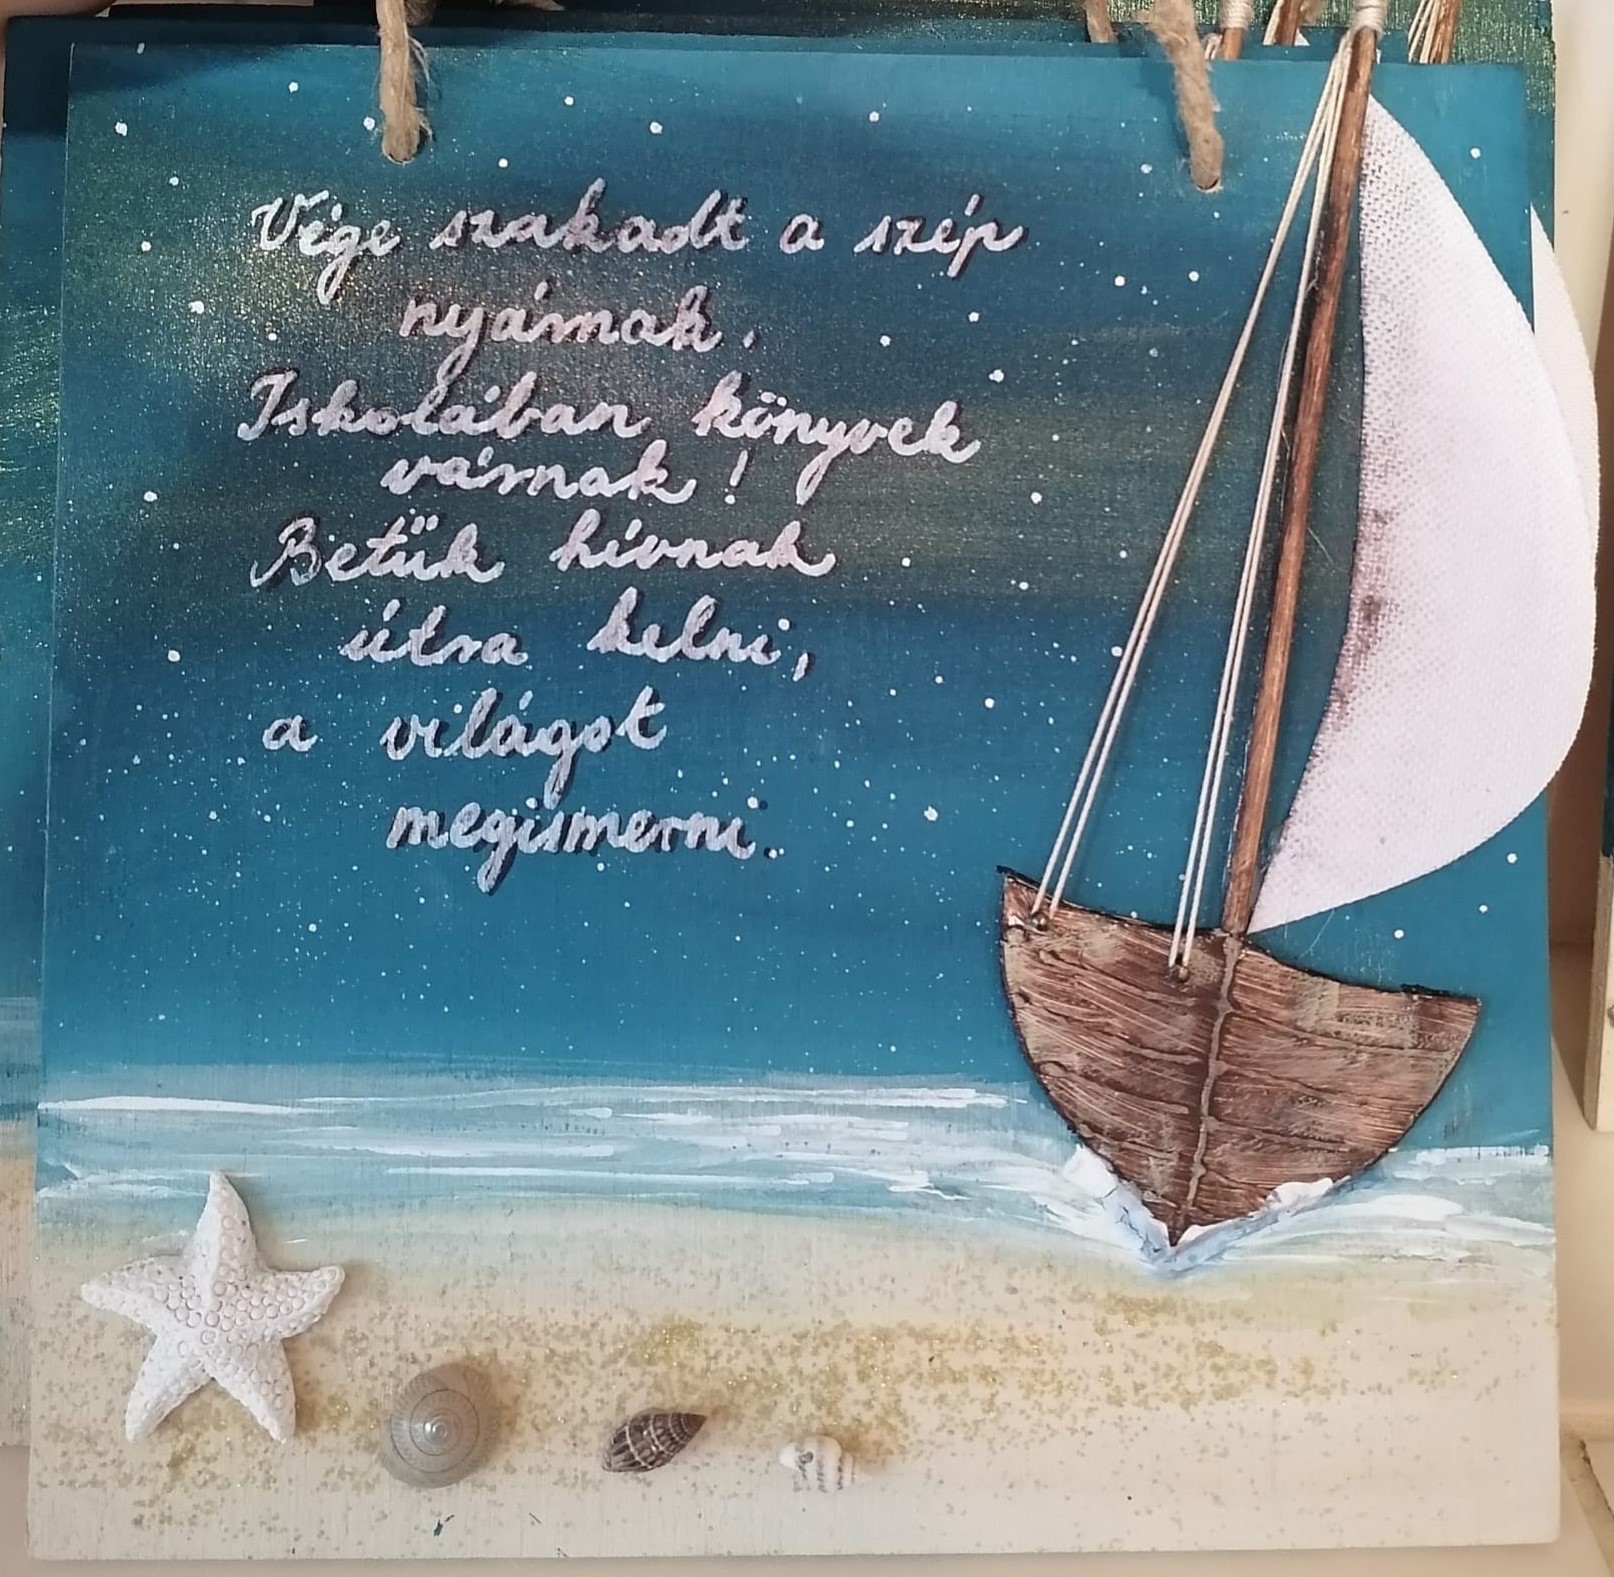 Vége szakadt a szép
nyárnak.
Iskolában könyvek
várnak!
Betűk hívnak
útra kelni,
a világot
megismerni.